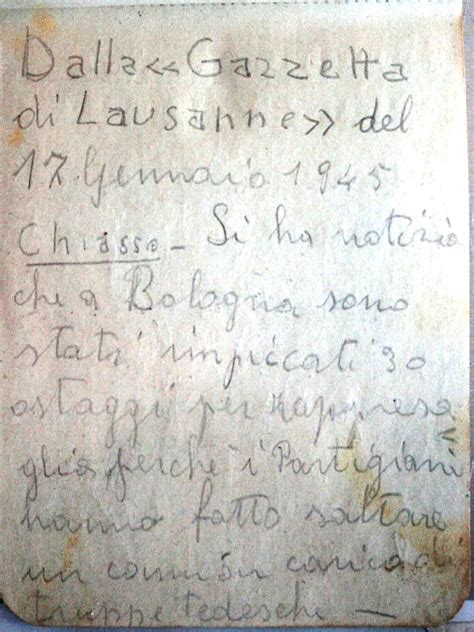 Dalla «Gazzetta
di Lausanne» del
17 Gennaio 1945
Chiasso - Si ha notizia
che a Bologna sono
stati impiccati 30
ostaggi per rappresa
glia, perchè i Partigiani
hanno fatto saltare
un camion carico di
truppe tedesche —